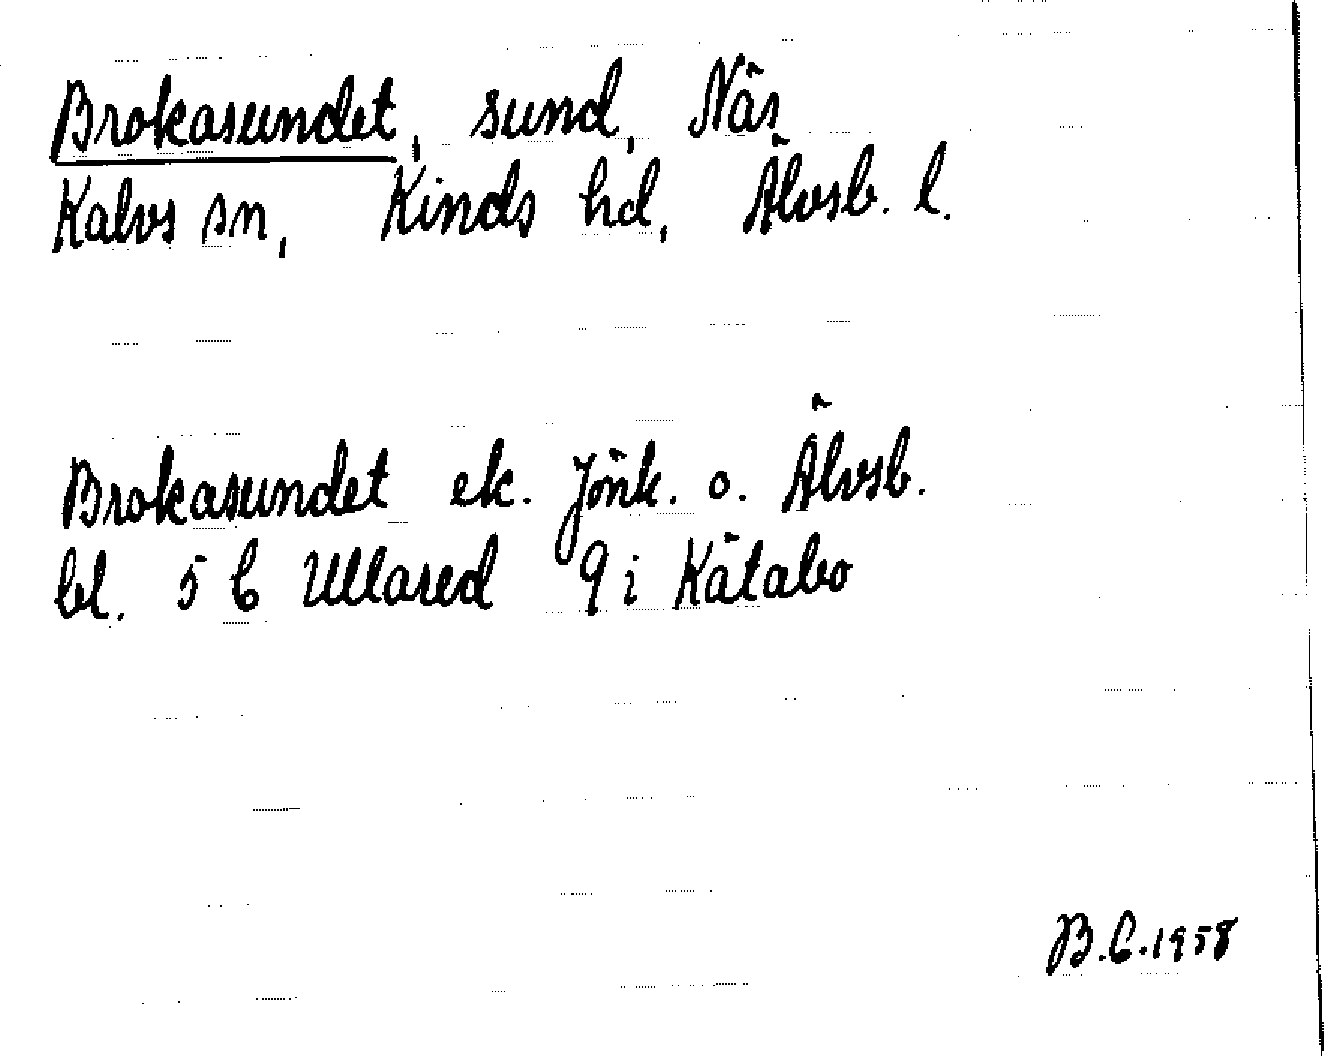 Brokasundet, sund, Näs,
Kalvs sn, Kinds hd, Älvsb. l.
Brokasundet ek. Jönk. o. Älvsb.
bl. 5 C Ullared 9 i Kätabo
B.C. 1958